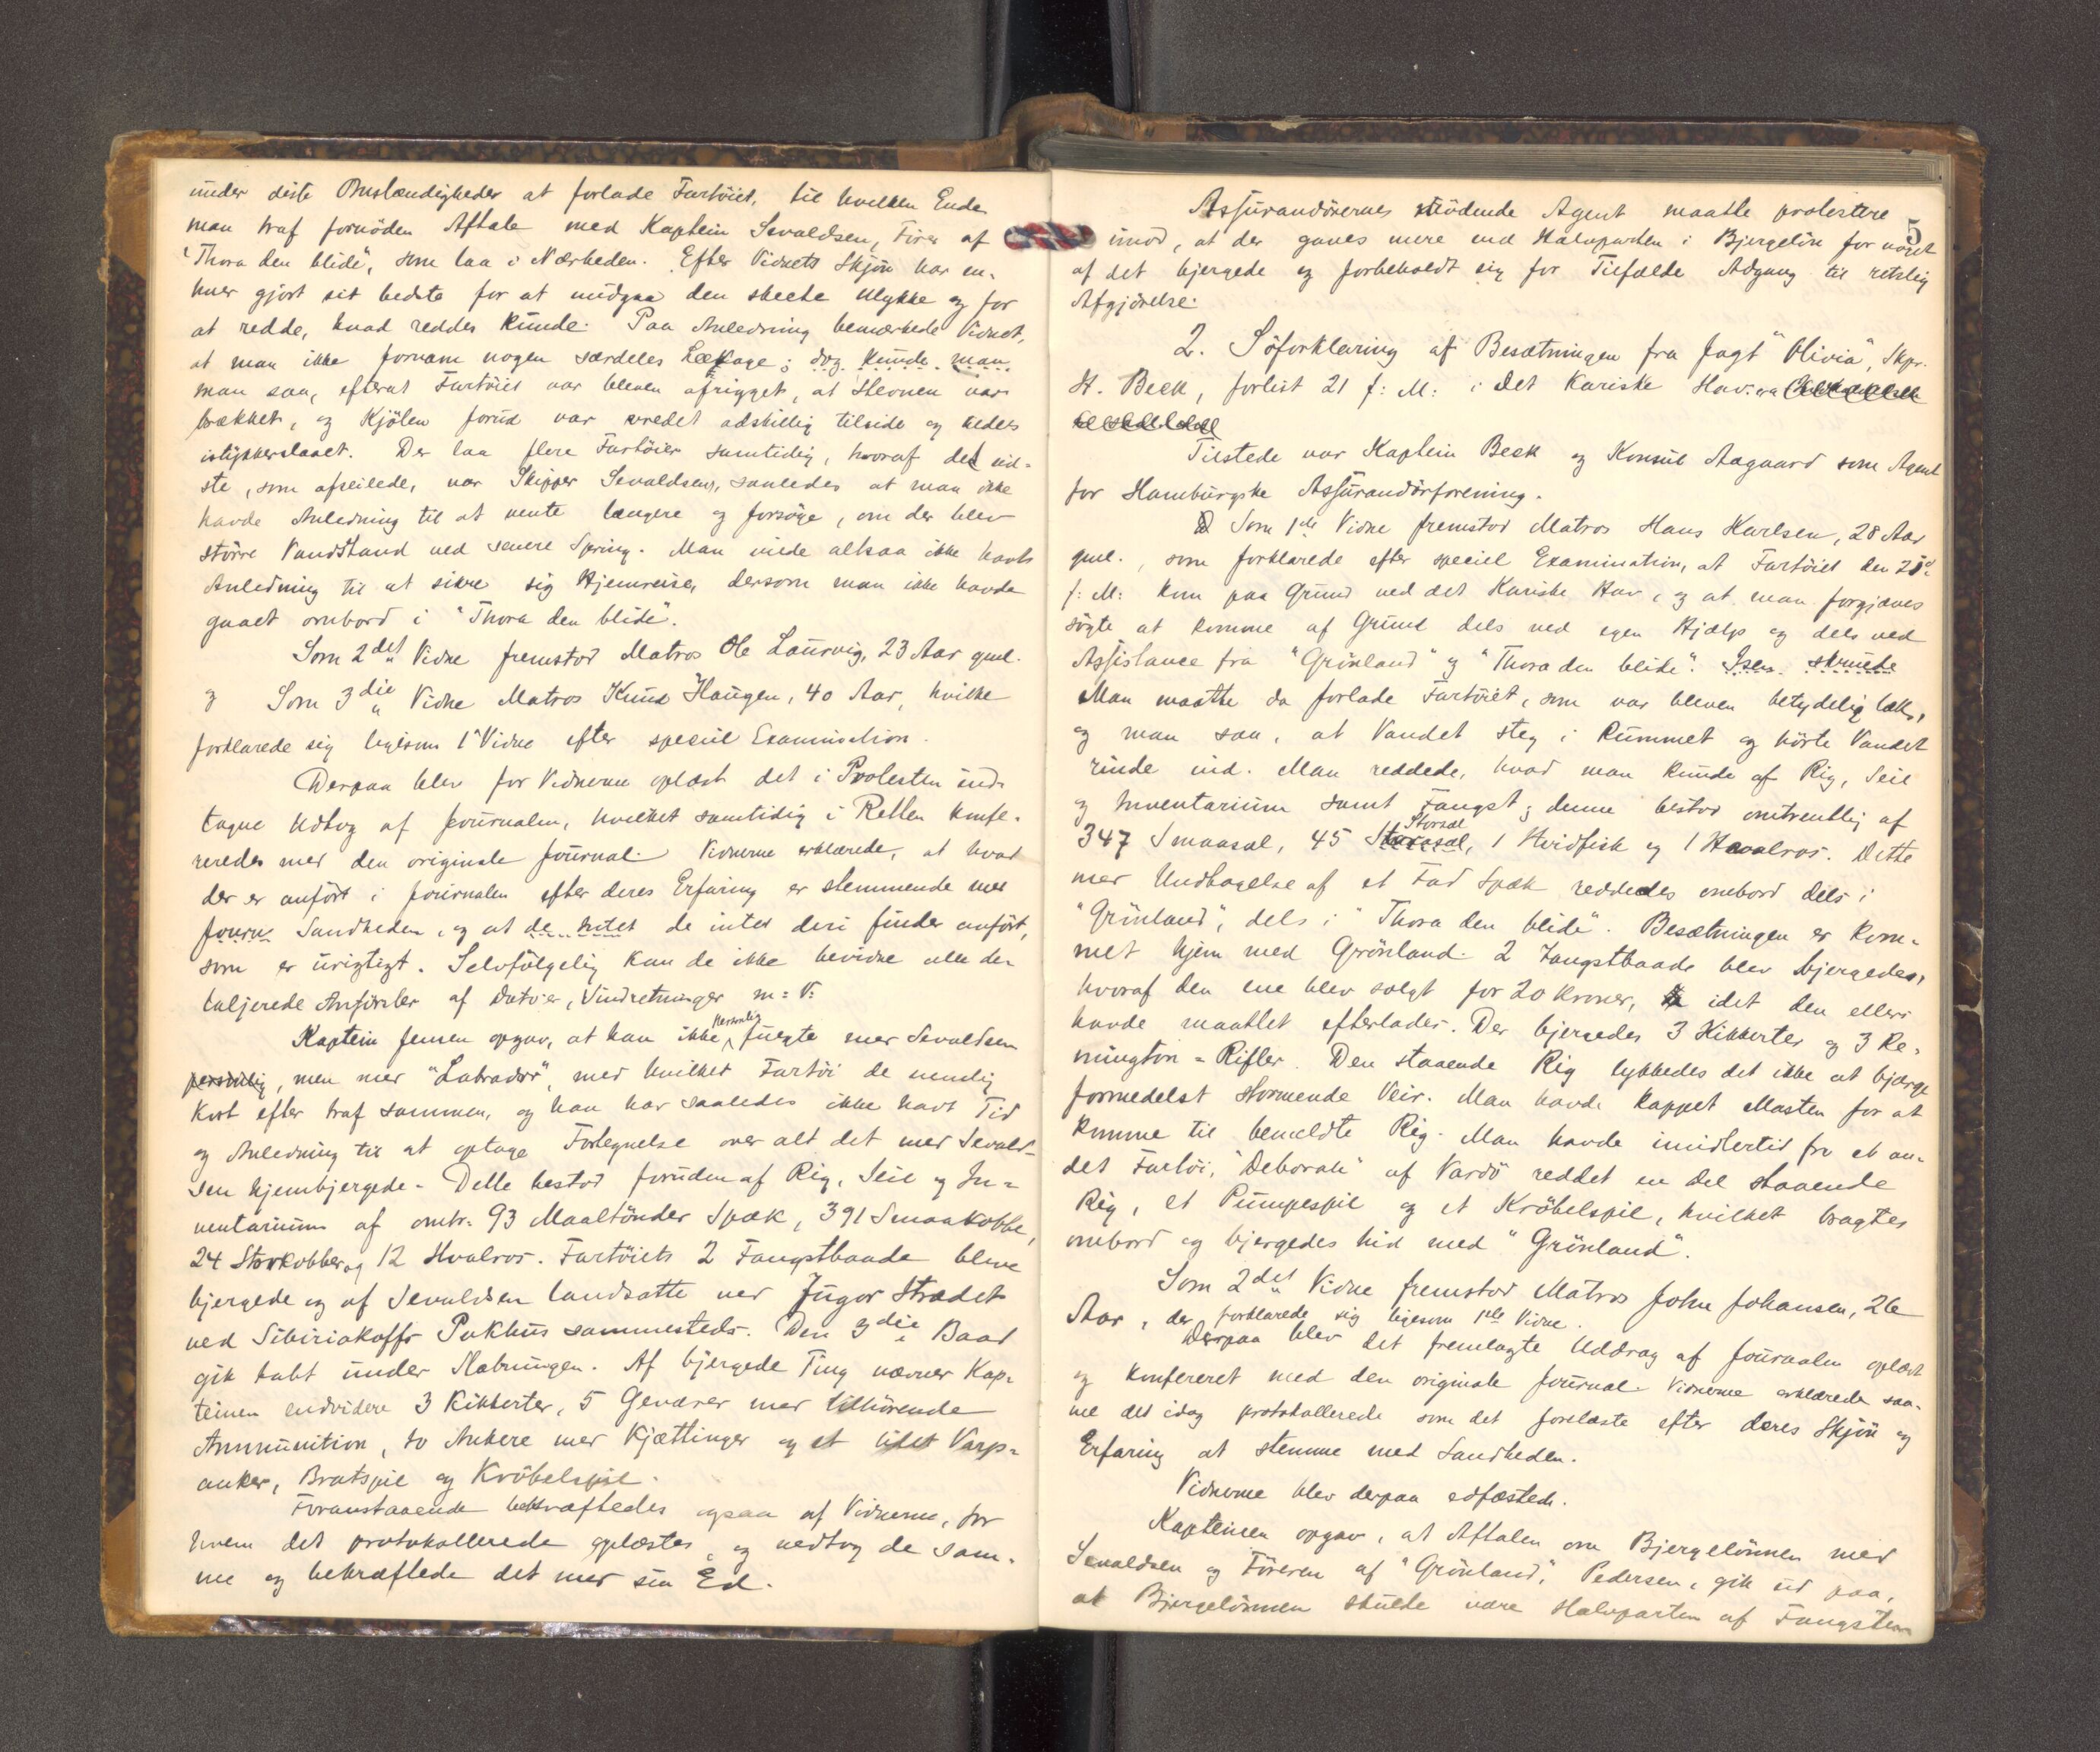 under disse Omstændigheder at forlade Fartöiet, til hvilken Ende
man traf fornöden Aftale med Kaptein Sevaldsen, Förer af
"Thora den blide", som laa i Nærheden. Efter Vidnets Skjön har en-
hver gjort sit bedste for at undgaa den skeete Ulykke og for
at redde, hvad reddes kunde. Paa Anledning bemærkede Vidnet,
at man ikke fornam nogen særdeles Lækage; dog kunde man
man saa, efterat Fartöiet var bleven afrigget, at Stevnen var
brækket, og Kjölen forud var vredet adskillig tilside og tildels
istykkerslaaet. Der laa flere Fartöier samtidig, hvoraf det sid-
ste, som afseilede, var Skipper Sevaldsens, saaledes at man ikke
havde Anledning til at vente længere og forsöge, om der blev
större Vandstand ved senere Spring. Man vilde altsaa ikke havt
Anledning til at sikre sig Hjemreise, dersom man ikke havde
gaaet ombord i "Thora den blide".
Som 2det Vidne fremstod Matros Ole Laurvig, 23 Aar gml.
og Som 3die Vidne Matros Knud Haugen, 40 Aar, hvilke
forklarede sig ligesom 1ste Vidne efter speciel Examination.
Derpaa blev for Vidnerne oplæst det i Protesten ind-
tagne Udtog af Journalen, hvilket samtidig i Retten konfe-
reredes med den originale Journal. Vidnerne erklærede, at hvad
der er anfört i Journalen efter deres Erfaring er stemmende med
Journ Sandheden, og at de intet de intet deri finder anfört,
som er urigtigt. Selvfölgelig kan de ikke bevidne alle de-
taljerede Anförsler af Datoer, Vindretninger m: V:
Kaptein Jensen opgav, at han ikke personlig fulgte med Sevaldsen
personlig, men med "Labrador", med hvilket Fartöi de nemlig
kort efter traf sammen, og han har saaledes ikke havt Tid
og Anledning til at optage Fortegnelse over alt det med Sevald-
sen hjembjergede. Dette bestod foruden af Rig, Seil og In-
ventarium af omtr. 93 Maaltönder Spæk, 391 Smaakobbe,
24 Storkobber og 12 Hvalros. Fartöiets 2 Fangstbaade bleve
bjergede og af Sevaldsen landsatte ved Jugor Strædet
ved Sibiriakoffs Pakhus sammesteds. Den 3die Baad
gik tabt under Slabningen. Af bjergede Ting nævner Kap-
teinen endvidere 3 Kikkerter, 5 Geværer med tilhörende
Ammunition, to Ankere med Kjættinger og et lidet Varp-
anker, Bratspil og Kröbelspil.
Foranstaaende bekræftedes ogsaa af Vidnerne, for
hvem det protokollerede oplæstes, og vedtog de sam-
me og bekræftede det med sin Ed.
5
Assurandörernes mödende Agent maatte protestere
imod, at der gaves mere end Halvparten i Bjergelön for noget
af det bjergede og forbeholdt sig for Tilfælde Adgang til retslig
Afgjörelse.
2. Söforklaring af Besætningen fra Jagt "Olivia", Skpr.
H. Beck, forlist 21 f: M: i det Kariske Hav.
Tilstede var Kaptein Beck og Konsul Aagaard som Agent
for Hamburgske Assurandörforening.
Som 1ste Vidne fremstod Matros Hans Karlsen, 28 Aar
gml., som forklarede efter speciel Examination, at Fartöiet den 21de
f: M: kom paa Grund ved det Kariske Hav, og at man forgjæves
sögte at komme af Grund dels ved egen Hjælp og dels ved
Assistance fra "Grönland" og "Thora den blide". Isen skruede
Man maatte da forlade Fartöiet, som var bleven betydelig læk,
og man saa, at Vandet steg i Rummet og hörte Vandet
rinde ind. Man reddede, hvad man kunde af Rig, Seil
og Inventarium samt Fangst; denne bestod omtrentlig af
347 Smaasæl, 45 Storsæl, 1 Hvidfisk og 1 Hvalros. Dette
med Undtagelse af et Fad Spæk reddedes ombord dels i
"Grönland", dels i "Thora den blide". Besætningen er kom-
met hjem med Grönland. 2 Fangstbaade blev bjergede,
hvoraf den ene blev solgt for 20 Kroner, idet den ellers
havde maattet efterlades. Der bjergedes 3 Kikkerter og 3 Re-
mington-Rifler. Den staaende Rig lykkedes det ikke at bjærge
formedelst stormende Veir. Man havde kappet Masten for at
komme til bemeldte Rig. Man havde imidlertid fra et an-
det Fartöi, "Deborah" af Vardö reddet en del staaende
Rig, et Pumpespil og et Kröbelspil, hvilket bragtes
ombord og bjergedes hid med "Grönland".
Som 2det Vidne fremstod Matros John Johansen, 26
Aar, der forklarede sig ligesom 1ste Vidne.
Derpaa blev det fremlagte Uddrag af Journalen oplæst
og konfereret med den originale Journal. Vidnerne erklærede saa-
vel det idag protokollerede som det forelæste efter deres Skjön og
Erfaring at stemme med Sandheden.
Vidnerne blev derpaa edfæstede.
Kapteinen opgav, at Aftalen om Bjergelönnen med
Sevaldsen og Föreren af "Grönland", Pedersen, gik ud paa,
at Bjergelönnen skulde være Halvparten af Fangsten